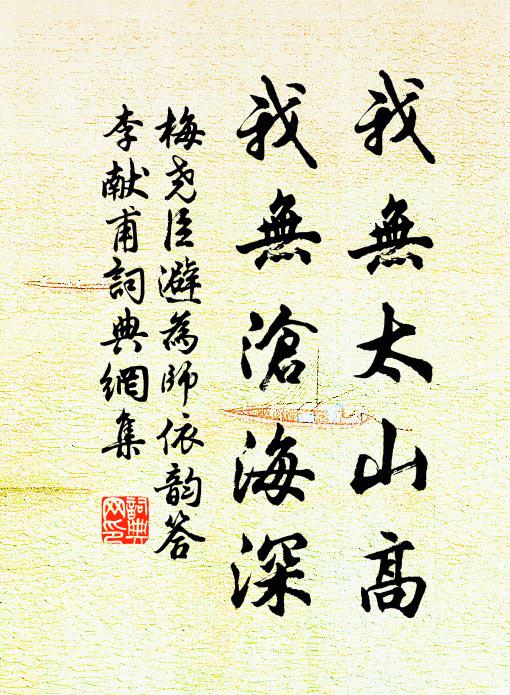 我無太山高
我無滄海深
梅尭臣避為師依韵答
李献甫詞典網集
詞典
网印